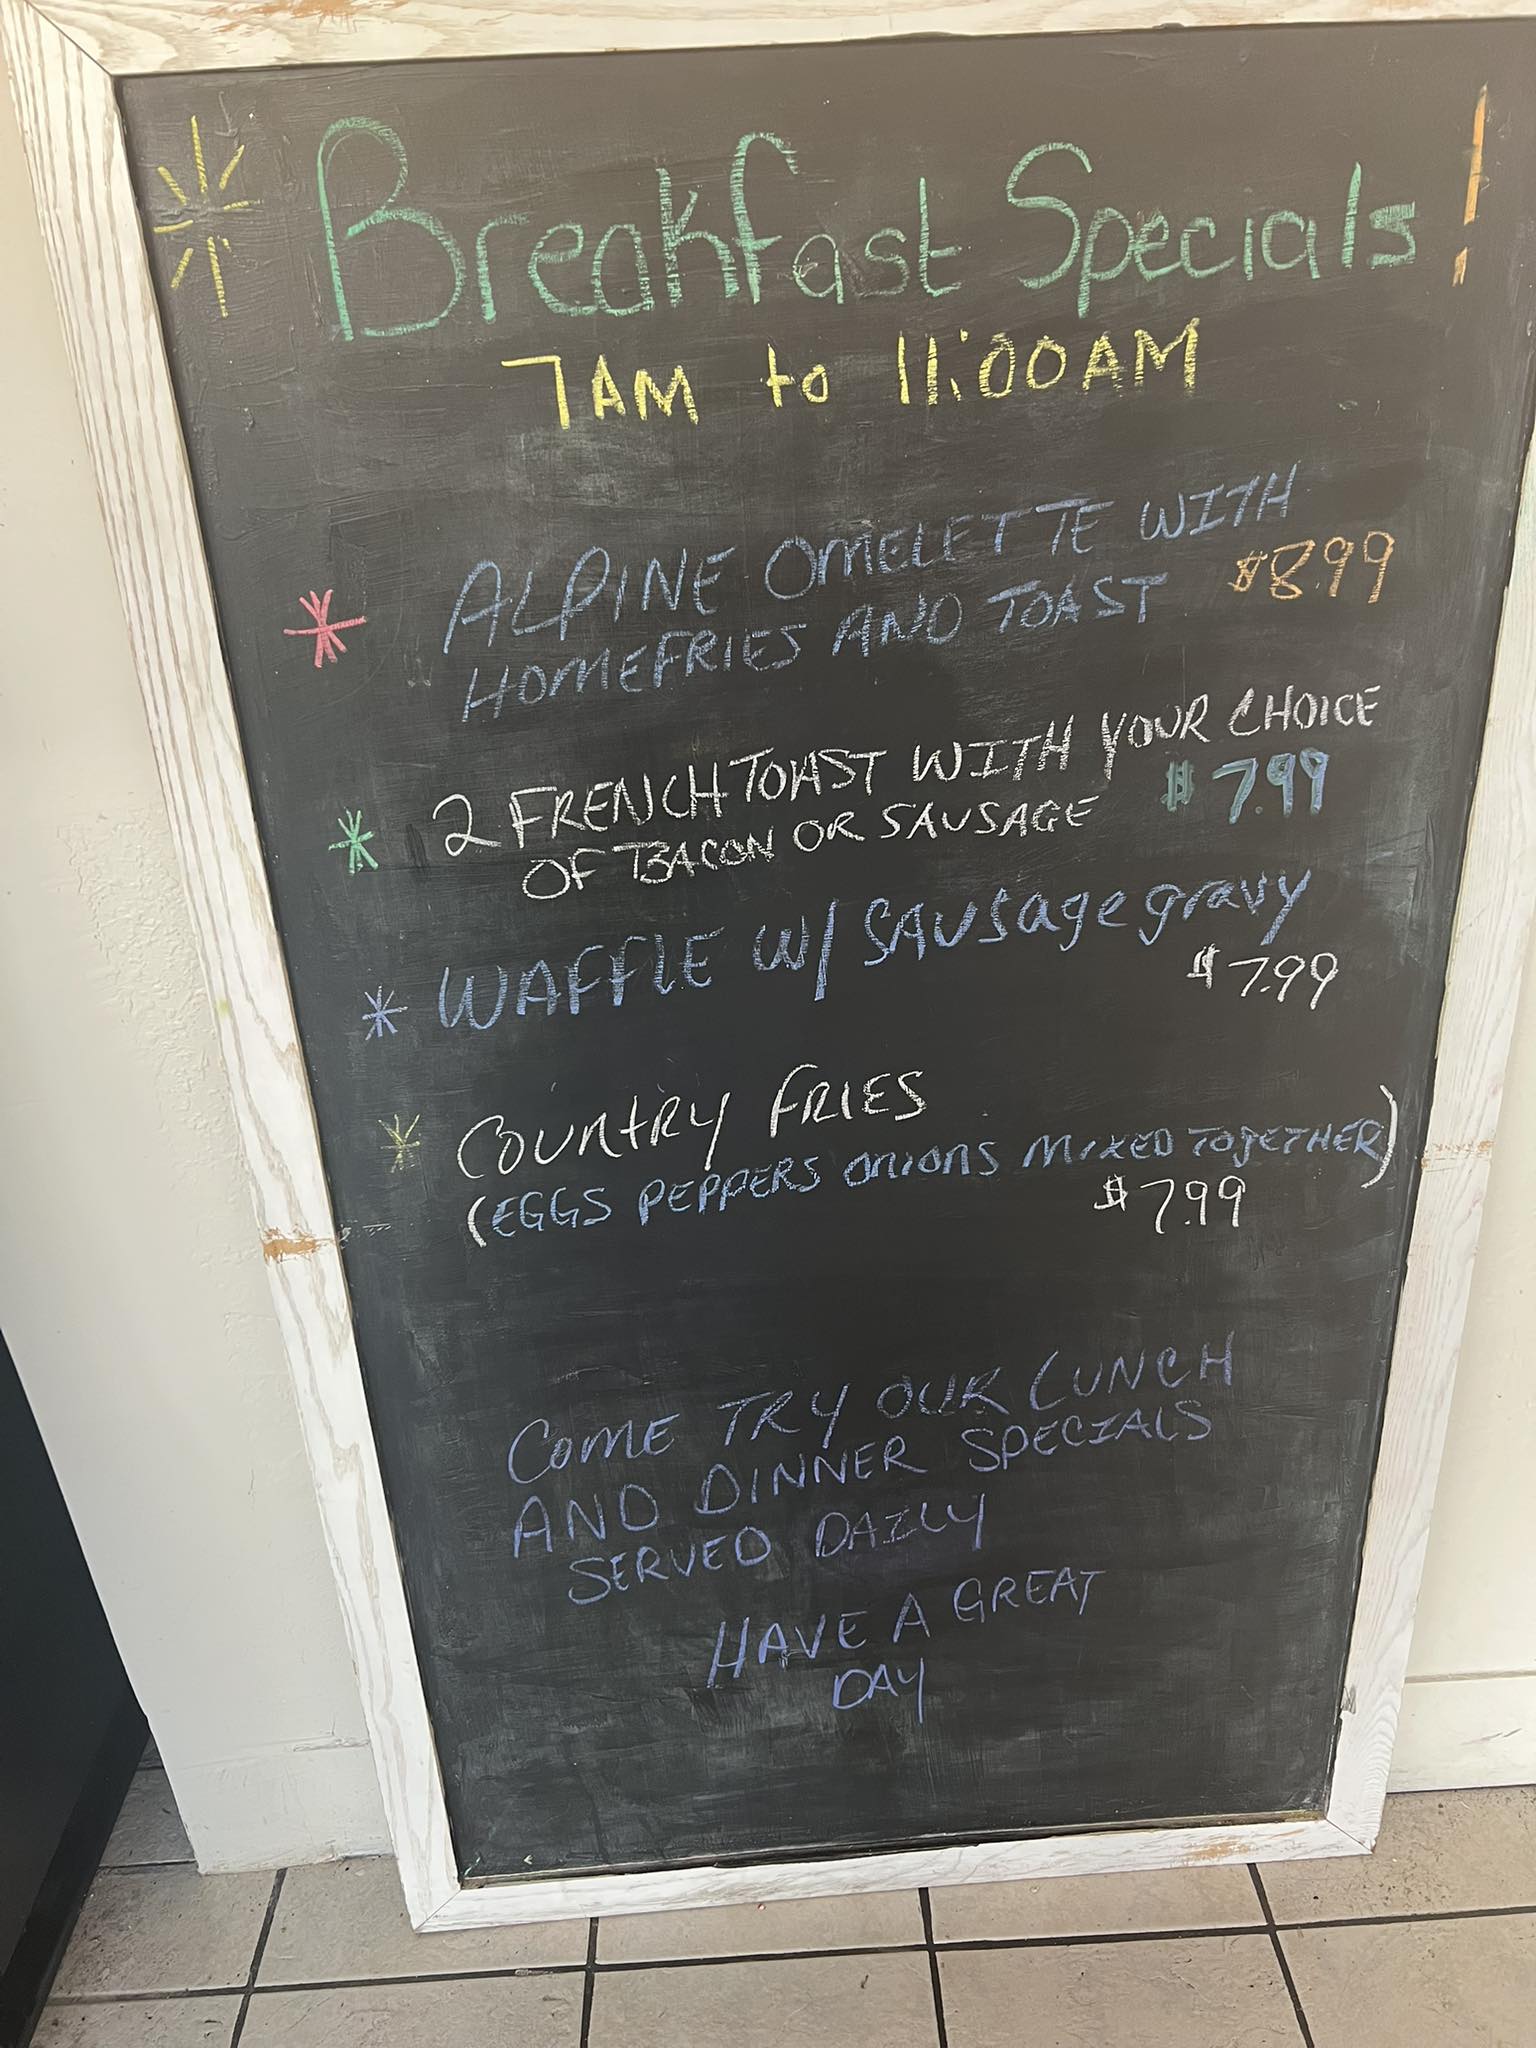 Breakfast Specials!
7AM to 11:00AM
* ALPINE OMELETTE WITH
HOMEFRIES AND TOAST $8.99
* 2 FRENCH TOAST WITH YOUR CHOICE
OF BACON OR SAUSAGE $7.99
* WAFFLE W/ SAUSage gravy
$7.99
* COUNTRY FRIES
(EGGS PEPPERS ONIONS MIXED TOGETHER)
$7.99
COME TRY OUR LUNCH
AND DINNER SPECIALS
SERVED DAILY
HAVE A GREAT
DAY